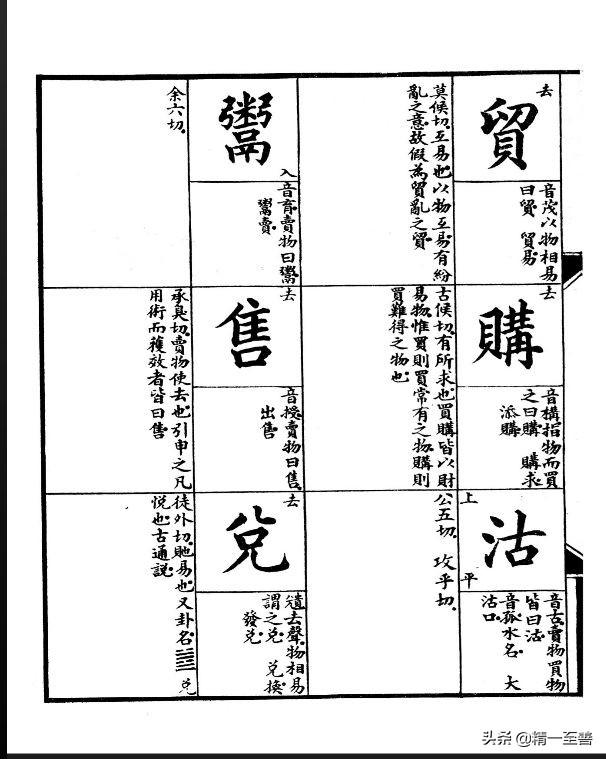 去
貿
音茂以物相易
曰貿 貿易
莫候切互易也以物互易有紛
亂之意故假為貿亂之貿
入
鬻
音育賣物曰鬻
鬻賣
余六切
去
購
音構指物而買
之曰購 購求
添購
古候切有所求也買購皆以財
易物惟買則買常有之物購則
買難得之物也
去
售
音授賣物曰售
出售
承臭切賣物使去也引申之凡
用術而獲效者皆曰售
上
平
沽
音古賣物買物
皆曰沽
音孤水名 大
沽口
公五切 攻乎切
去
兌
隊去聲物相易
謂之兌 兌換
發兌
徒外切 易也又卦名 ☱ 兌
悅也古通說
头条 @精一至善